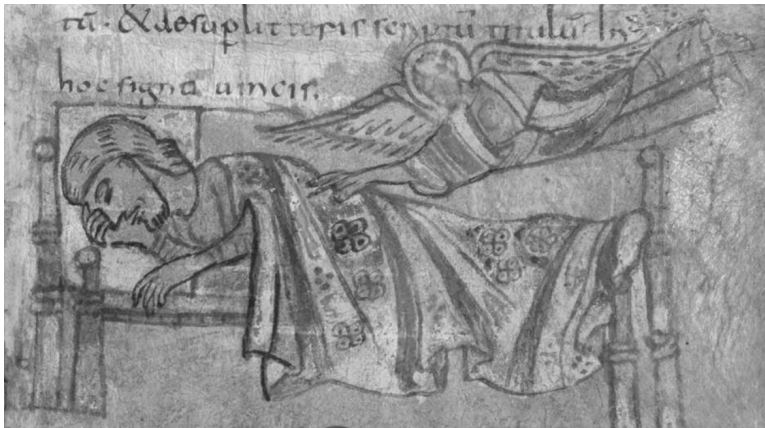 tū· & desuꝑ litteris scriptū titulū· In
hoc signo uincis.